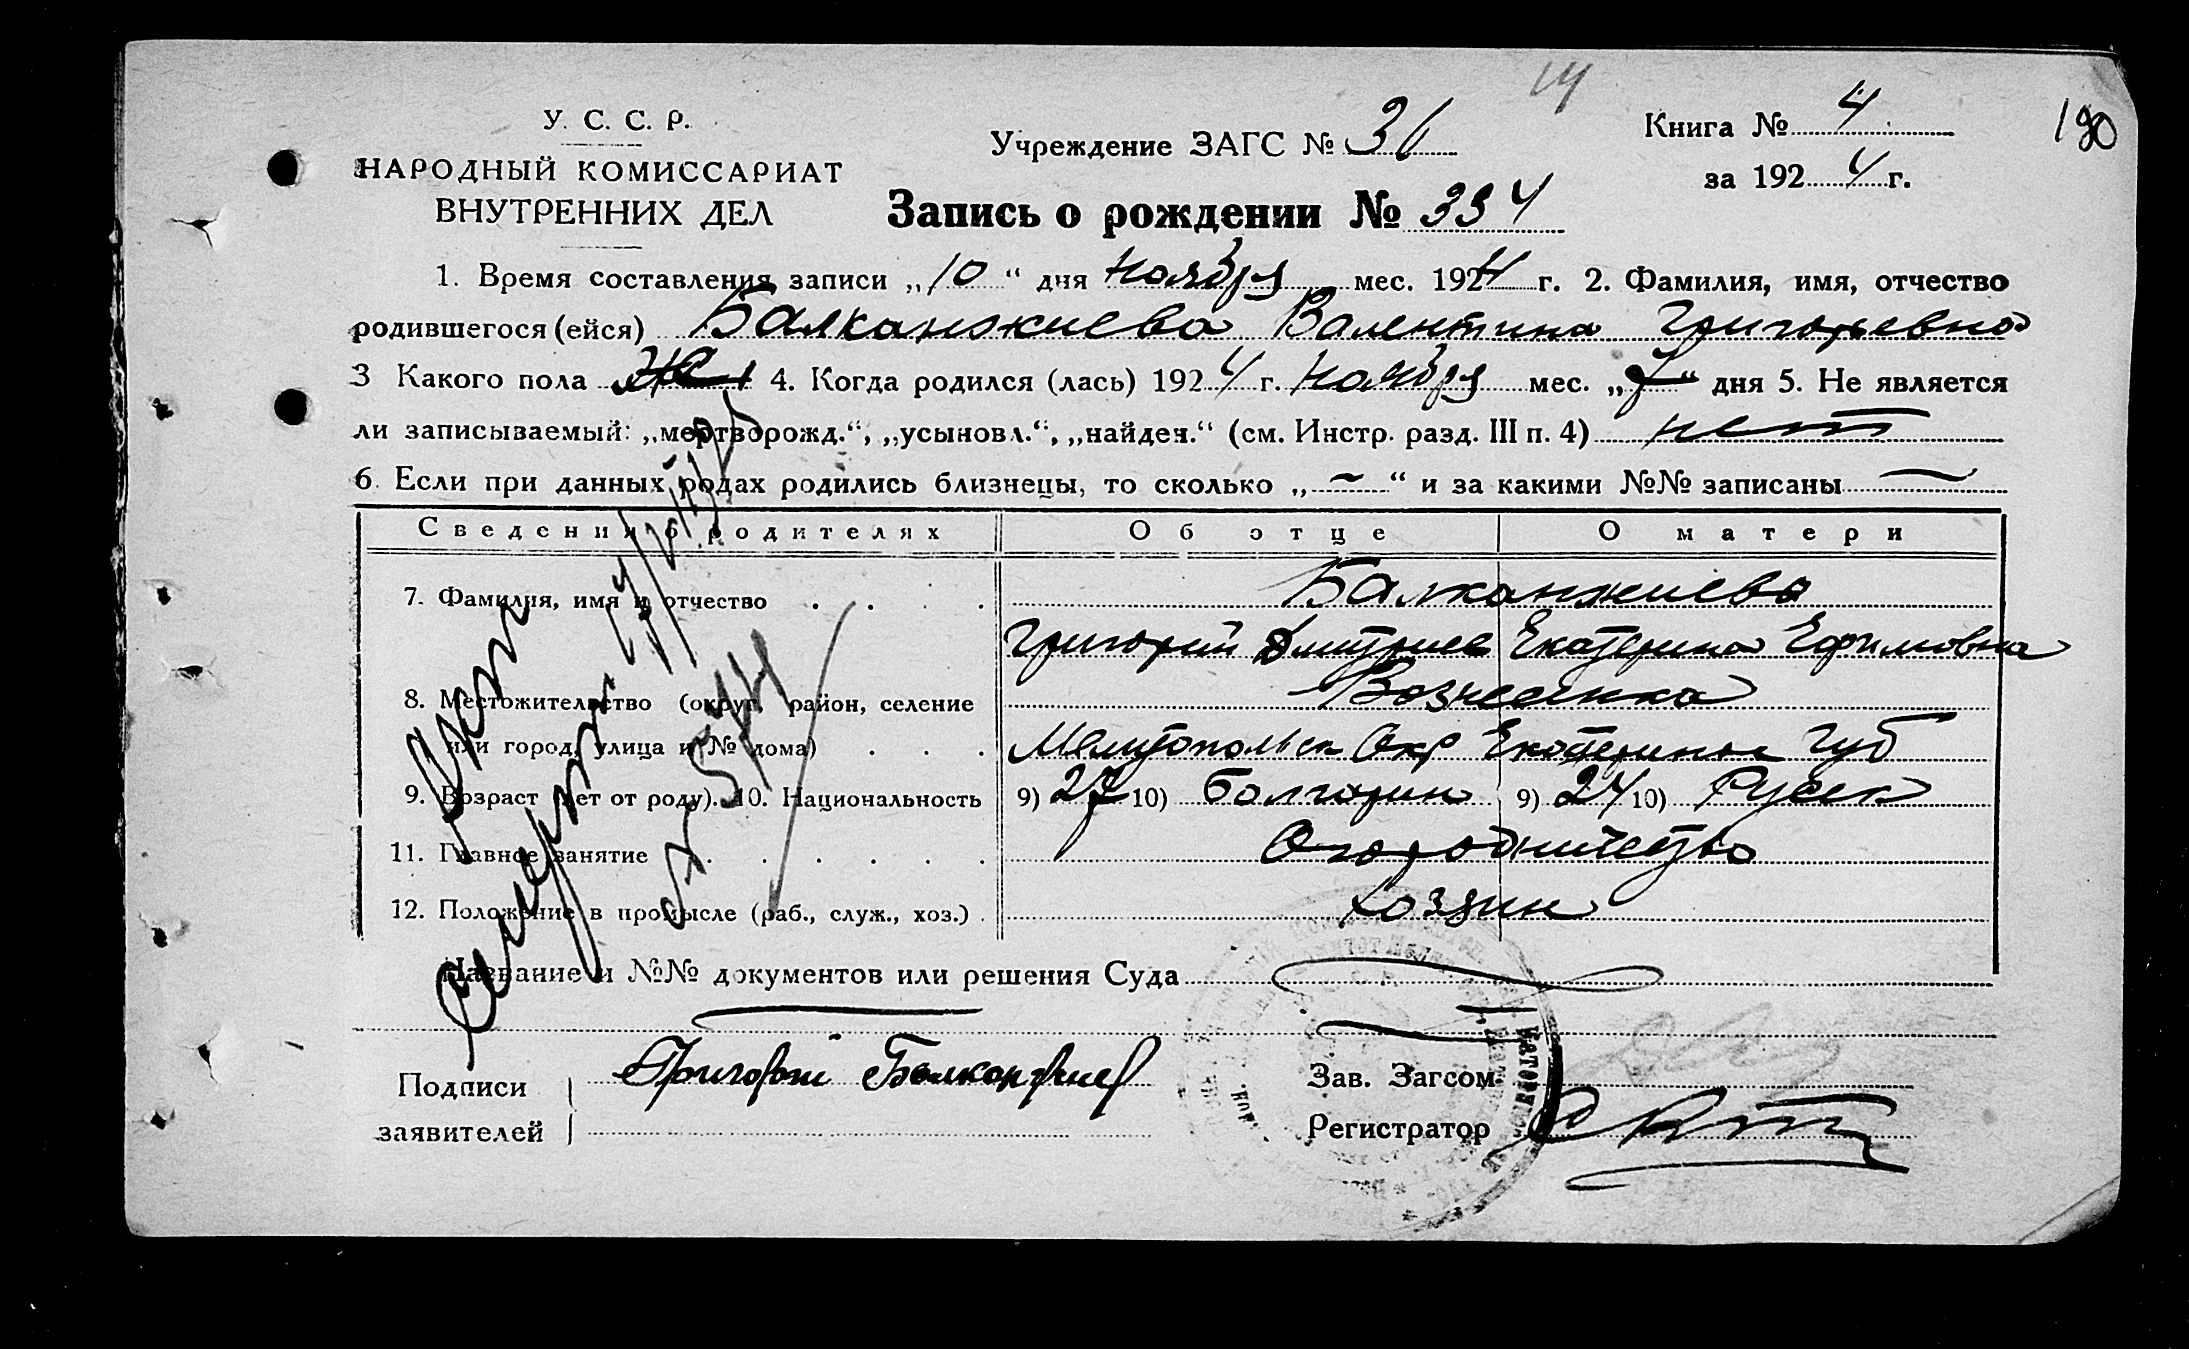 14
У. С. С. Р.
НАРОДНЫЙ КОМИССАРИАТ
ВНУТРЕННИХ ДЕЛ
Учреждение ЗАГС № 36
Книга № 4
190
за 1924 г.
Запись о рождении № 334
1. Время составления записи „10“ дня ноября мес. 1924 г. 2. Фамилия, имя, отчество
родившегося (ейся) Балканжиева Валентина Григорьевна
3 Какого пола Ж 4. Когда родился (лась) 1924 г. ноября мес. „7“ дня 5. Не является
ли записываемый: „мертворожд.“, „усыновл.“, „найден.“ (см. Инстр. разд. III п. 4) нет
6. Если при данных родах родились близнецы, то сколько „~“ и за какими №№ записаны —
Сведения о родителях Об отце О матери
7. Фамилия, имя и отчество Балканжиевы
Григорий Дмитриев Екатерина Ефимовна
8. Местожительство (округ, район, селение Вознесенка
или город, улица и № дома) Мелитопольск Окр Екатеринос Губ
9. Возраст (лет от роду). 10. Национальность 9) 27 10) Болгарин 9) 24 10) Русск
11. Главное занятие Огородничество
12. Положение в промысле (раб., служ., хоз.) Хозяин
Название и №№ документов или решения Суда
Подписи заявителей Григорий Балканжиев
Зав. Загсом
Регистратор
Акт
смерти